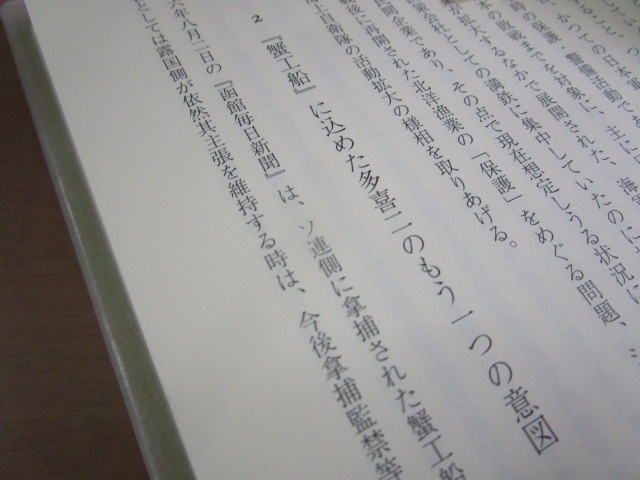 かつての日本軍
の保護・警備活動であ
の敗戦までを対象に、主に
が拡大するなかで展開された、
策会社としての満鉄に集中していたのに
間企業であり、その点で現在想定しうる状況に
後に再開された北洋漁業の「保護」をめぐる問題、
上自衛隊の活動拡大の様相を取りあげる。
2 『蟹工船』に込めた多喜二のもう一つの意図
六年八月二日の『函館毎日新聞』は、ソ連側に拿捕された蟹工船
としては露国側が依然其主張を維持する時は、今後拿捕監禁等